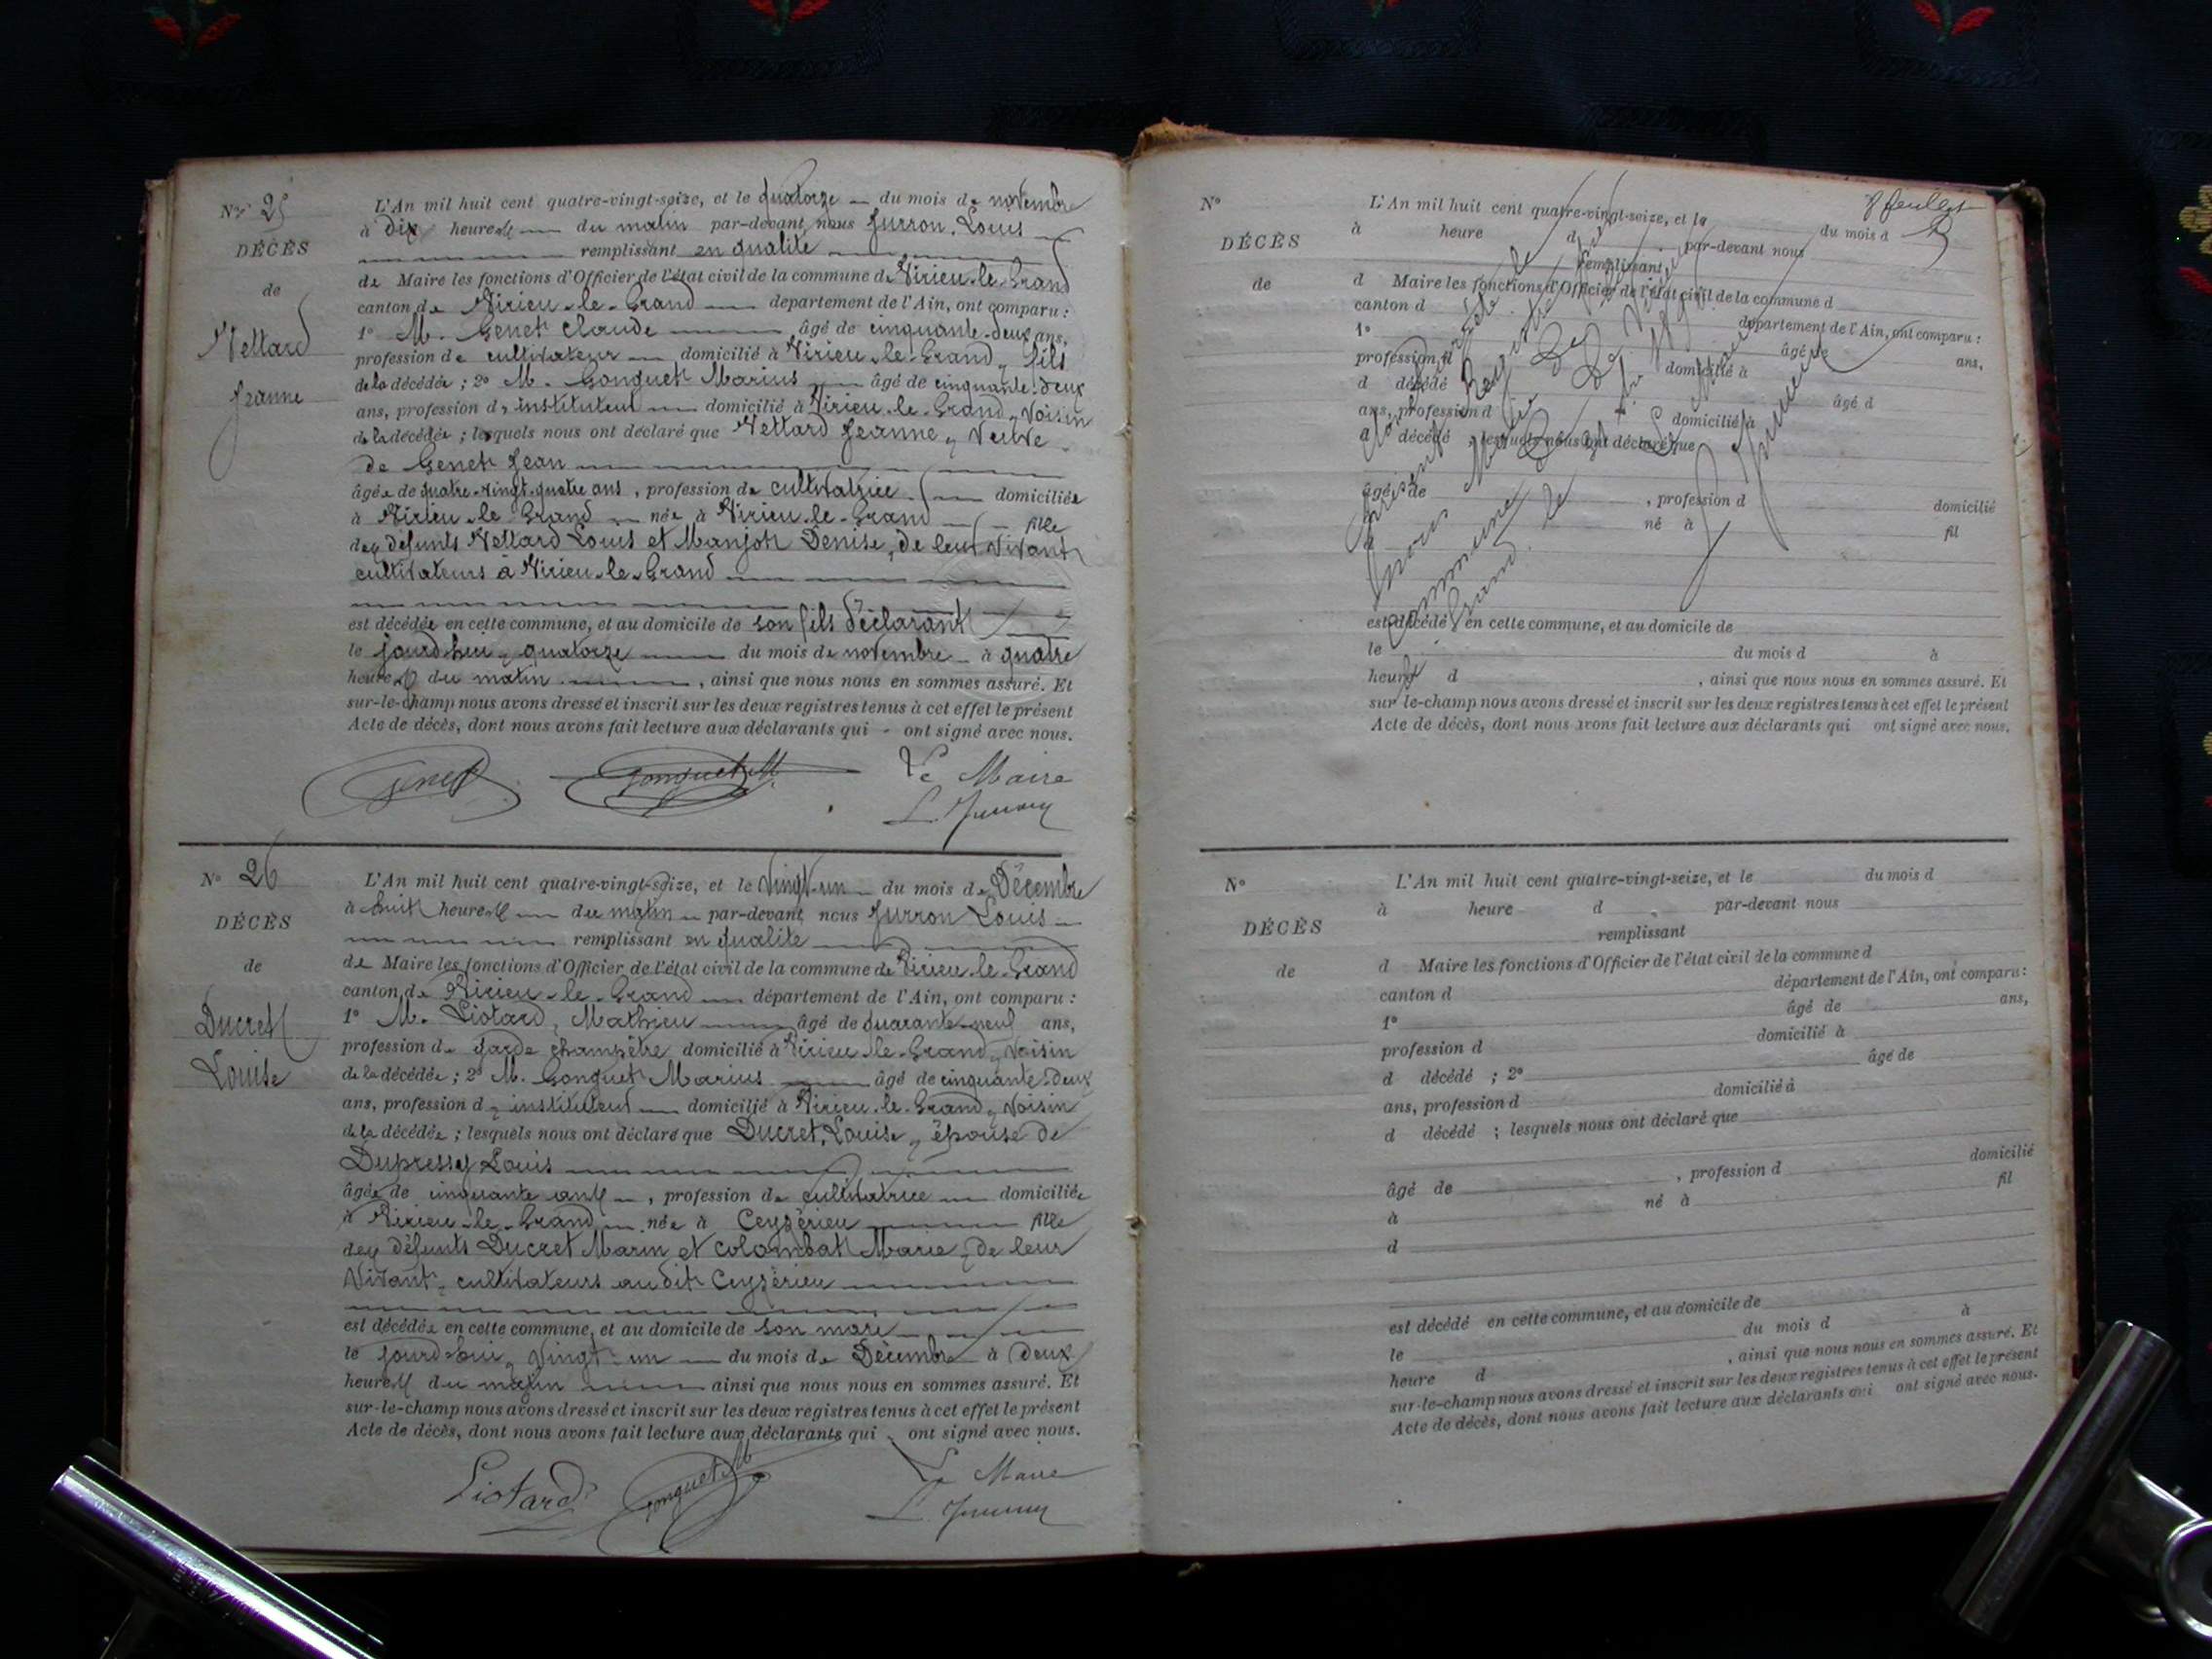 N° 25
DÉCÈS
de
Vettard
Jeanne
L'An mil huit cent quatre-vingt-seize, et le quatorze du mois de novembre
à dix heures du matin par-devant nous Jurron, Louis
remplissant en qualité
de Maire les fonctions d'Officier de l'état civil de la commune de Virieu-le-Grand
canton de Virieu-le-Grand département de l'Ain, ont comparu :
1° M. Genet Claude âgé de cinquante-deux ans,
profession de cultivateur domicilié à Virieu-le-Grand, fils
de la décédée ; 2° M. Gonguet Marius âgé de cinquante-deux
ans, profession d'instituteur domicilié à Virieu-le-Grand, voisin
de la décédée ; lesquels nous ont déclaré que Vettard Jeanne, Veuve
de Genet Jean
âgée de quatre-vingt-quatre ans, profession de cultivatrice domiciliée
à Virieu-le-Grand née à Virieu-le-Grand fille
des défunts Vettard Louis et Manjot Denise, de leur vivant
cultivateurs à Virieu-le-Grand
est décédée en cette commune, et au domicile de son fils déclarant
le jourd'hui, quatorze du mois de novembre à quatre
heures du matin, ainsi que nous nous en sommes assuré. Et
sur-le-champ nous avons dressé et inscrit sur les deux registres tenus à cet effet le présent
Acte de décès, dont nous avons fait lecture aux déclarants qui ont signé avec nous.
Genet Gonguet M Le Maire
L. Jurron
N° 26
DÉCÈS
de
Ducret
Louise
L'An mil huit cent quatre-vingt-seize, et le vingt-un du mois de Décembre
à huit heures du matin par-devant nous Jurron Louis
remplissant en qualité
de Maire les fonctions d'Officier de l'état civil de la commune de Virieu-le-Grand
canton de Virieu-le-Grand département de l'Ain, ont comparu :
1° M. Liotard, Mathieu âgé de quarante-neuf ans,
profession de garde champêtre domicilié à Virieu-le-Grand, voisin
de la décédée ; 2° M. Gonguet Marius âgé de cinquante-deux
ans, profession d'instituteur domicilié à Virieu-le-Grand, voisin
de la décédée ; lesquels nous ont déclaré que Ducret, Louise, épouse de
Dupressy Louis
âgée de cinquante ans, profession de cultivatrice domiciliée
à Virieu-le-Grand née à Ceyzérieu fille
des défunts Ducret Marin et Colombat Marie, de leur
vivant, cultivateurs audit Ceyzérieu
est décédée en cette commune, et au domicile de son mari
le jourd'hui, vingt-un du mois de Décembre à deux
heures du matin ainsi que nous nous en sommes assuré. Et
sur-le-champ nous avons dressé et inscrit sur les deux registres tenus à cet effet le présent
Acte de décès, dont nous avons fait lecture aux déclarants qui ont signé avec nous.
Liotard Gonguet M Le Maire
L. Jurron
N°
DÉCÈS
de
L'An mil huit cent quatre-vingt-seize, et le du mois d
à heure d par-devant nous
remplissant
d Maire les fonctions d'Officier de l'état civil de la commune d
canton d département de l'Ain, ont comparu :
1° âgé de ans,
profession d domicilié à
d décédé âgé d
ans, profession d domicilié à
d décédé ; lesquels nous ont déclaré que
âgé de , profession d domicilié
à né à fil
d
est décédé en cette commune, et au domicile de
le du mois d à
heure d , ainsi que nous nous en sommes assuré. Et
sur-le-champ nous avons dressé et inscrit sur les deux registres tenus à cet effet le présent
Acte de décès, dont nous avons fait lecture aux déclarants qui ont signé avec nous.
N°
DÉCÈS
de
L'An mil huit cent quatre-vingt-seize, et le du mois d
à heure d par-devant nous
remplissant
d Maire les fonctions d'Officier de l'état civil de la commune d
canton d département de l'Ain, ont comparu :
1° âgé de ans,
profession d domicilié à
d décédé ; 2° âgé de
ans, profession d domicilié à
d décédé ; lesquels nous ont déclaré que
âgé de , profession d domicilié
à né à fil
d
est décédé en cette commune, et au domicile de
le du mois d à
heure d , ainsi que nous nous en sommes assuré. Et
sur-le-champ nous avons dressé et inscrit sur les deux registres tenus à cet effet le présent
Acte de décès, dont nous avons fait lecture aux déclarants qui ont signé avec nous.